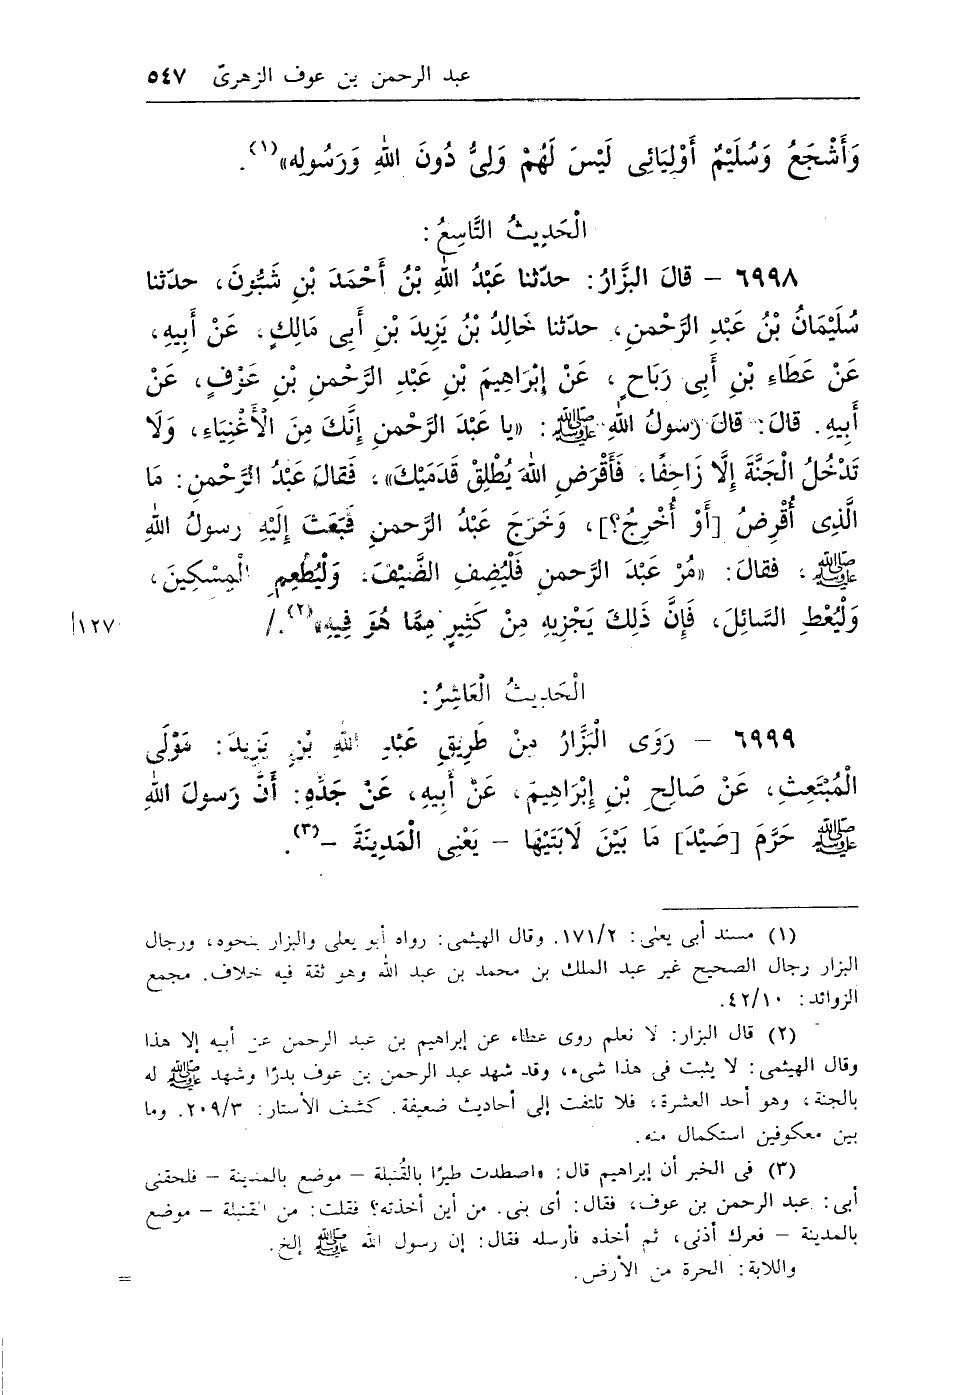 عبد الرحمن بن عوف الزهرىّ ٥٤٧
وَأَشْجَعُ وَسُلَيْمٌ أَوْلِيَائِى لَيْسَ لَهُمْ وَلِىٌّ دُونَ اللهِ وَرَسُولِه»(١).
الْحَدِيثُ التَّاسِعُ:
٦٩٩٨ – قالَ البزَّارُ: حدّثنا عَبْدُ اللهِ بْنُ أَحْمَدَ بْنِ شَبُّونَ، حدّثنا
سُلَيْمَانُ بْنُ عَبْدِ الرَّحْمنِ، حدّثنا خَالِدُ بْنُ يَزِيدَ بْنِ أَبِى مَالِكٍ، عَنْ أَبِيهِ،
عَنْ عَطَاءِ بْنِ أَبِى رَبَاحٍ، عَنْ إِبْرَاهِيمَ بْنِ عَبْدِ الرَّحْمنِ بْنِ عَوْفٍ، عَنْ
أَبِيهِ. قَالَ: قالَ رَسولُ اللهِ ﷺ: «يا عَبْدَ الرَّحْمنِ إِنَّكَ مِنَ الْأَغْنِيَاءِ، وَلَا
تَدْخُلُ الْجَنَّةَ إِلَّا زَاحِفًا، فَأَقْرَضِ اللهَ يُطْلِقْ قَدَمَيْكَ»، فَقالَ عَبْدُ الرَّحْمنِ: مَا
الَّذِى أُقْرِضُ [أَوْ أُخْرِجُ؟]، وَخَرَجَ عَبْدُ الرَّحمنِ فَبَعَثَ إِلَيْهِ رسولُ اللهِ
ﷺ، فقالَ: «مُرْ عَبْدَ الرَّحمنِ فَلْيُضِفِ الضَّيْفَ، وَلْيُطْعِمِ الْمِسْكِينَ،
وَلْيُعْطِ السَّائِلَ، فَإِنَّ ذَلِكَ يَجْزِيهِ مِنْ كَثِيرٍ مِمَّا هُوَ فِيهِ»(٢)./ ١٢٧/أ
الْحَدِيثُ الْعَاشِرُ:
٦٩٩٩ – رَوَى الْبَزَّارُ مِنْ طَرِيقِ عَبْدِ اللهِ بْنِ يَزِيدَ: مَوْلَى
الْمُبْتَعِثِ، عَنْ صَالِحِ بْنِ إِبْرَاهِيمَ، عَنْ أَبِيهِ، عَنْ جَدِّهِ: أَنَّ رَسولَ اللهِ
ﷺ حَرَّمَ [صَيْدَ] مَا بَيْنَ لَابَتَيْهَا – يَعْنِى الْمَدِينَةَ –(٣).
(١) مسند أبى يعلى: ١٧١/٢. وقال الهيثمى: رواه أبو يعلى والبزار بنحوه، ورجال
البزار رجال الصحيح غير عبد الملك بن محمد بن عبد الله وهو ثقة فيه خلاف. مجمع
الزوائد: ٤٢/١٠.
(٢) قال البزار: لا نعلم روى عطاء عن إبراهيم بن عبد الرحمن عن أبيه إلا هذا
وقال الهيثمى: لا يثبت فى هذا شىء، وقد شهد عبد الرحمن بن عوف بدرًا وشهد ﷺ له
بالجنة، وهو أحد العشرة، فلا تلتفت إلى أحاديث ضعيفة. كشف الأستار: ٢٠٩/٣. وما
بين معكوفين استكمال منه.
(٣) فى الخبر أن إبراهيم قال: «اصطدت طيرًا بالقُنبلة – موضع بالمدينة – فلحقنى
أبى: عبد الرحمن بن عوف، فقال: أى بنى. من أين أخذته؟ فقلت: من القنبلة – موضع
بالمدينة – فعرك أذنى، ثم أخذه فأرسله فقال: إن رسول الله ﷺ إلخ.
واللابة: الحرة من الأرض.
=